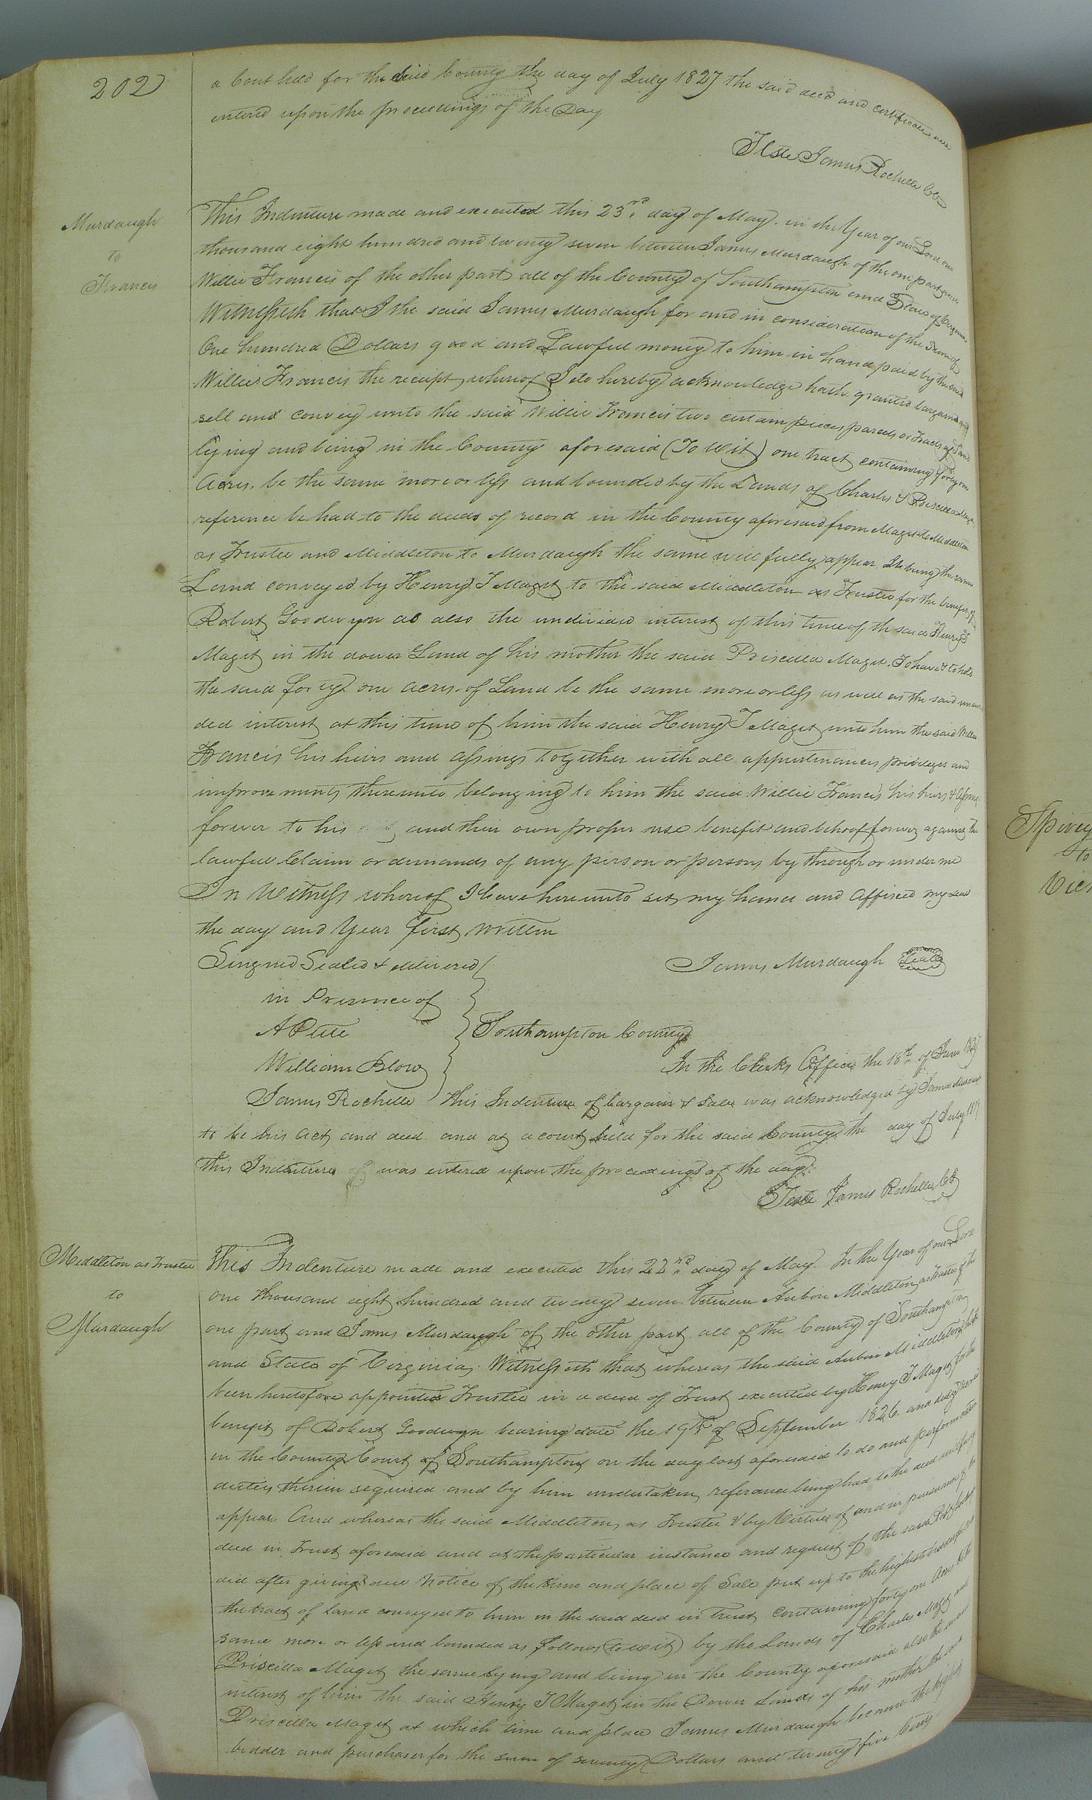 202
a Court held for the said County the day of July 1827 the said deed and certificate were
entered upon the proceedings of the Day
Teste James Rochelle Clk
Murdaugh
to
Francis
This Indenture made and executed this 23rd day of May in the Year of our Lord one
thousand eight hundred and twenty seven between James Murdaugh of the one part and
Willie Francis of the other part all of the County of Southampton and State of Virginia
Witnesseth that I the said James Murdaugh for and in consideration of the sum of
One hundred Dollars good and Lawful money to him in hand paid by the said
Willie Francis the receipt whereof I do hereby acknowledge hath granted bargained
sell and convey unto the said Willie Francis two certain pieces parcels or Tracts of Land
lying and being in the County aforesaid (To Wit) one tract containing forty one
Acres. be the same more or less and bounded by the Lands of Charles & Priscilla Maget
reference be had to the deeds of record in the County aforesaid from Maget to Middleton
as Trustee and Middleton to Murdaugh the same will fully appear. It being the same
Land conveyed by Henry J Maget to the said Middleton as Trustee for the benefit of
Robert Goodwyn as also the undivided interest of this time of the said Henry J
Maget in the dower Land of his mother the said Priscilla Maget. To have & to hold
the said forty one acres of Land be the same more or less as well as the said undivi
ded interest at this time of him the said Henry J Maget unto him the said Willie
Francis his heirs and assings together with all appurtinances privileges and
improvements thereunto belonging to him the said Willie Francis his heirs & Assings
forever to his and their own proper use benefit and behoof forever against the
lawful Claim or demands of any person or persons by through or under me
In Witness whereof I have hereunto set my hand and Affixed my seal
the day and Year first written
Singned Sealed & delivered James Murdaugh Seal
in Presence of
A Pete Southampton County
William Blow In the Clerks Office the 18th of June 1827
James Rochelle This Indenture of bargain & Sale was acknowledged by James
to be his Act and deed and at a court held for the said County the day of July 1827
this Indenture was entered upon the proceedings of the day.
Teste James Rochelle Clk
Middleton as Trustee
to
Murdaugh
This Indenture made and executed this 22nd day of May In the Year of our Lord
one thousand eight hundred and twenty seven between Middleton as Trustee of the
one part and James Murdaugh of the other part all of the County of Southampton
and State of Virginia Witnesseth that whereas the said Middleton hath
been heretofore appointed Trustee in a deed of Trust executed by Henry J Maget for the
benefit of Robert Goodwyn bearing date the 19th of September 1826 and duly
in the County Court of Southampton on the day last aforesaid to do and perform
duties therein required and by him undertaken, reference being had to the deed will fully
appear And whereas the said Middleton, as Trustee & by Virtue of and in pursuance of the
deed in Trust aforesaid and at the particular instance and request of the said
did after giving due Notice of the time and place of Sale put up to the highest
the tract of land conveyed to him in the said deed in Trust containing forty one Acres be the
same more or less and bounded as follows (to wit) by the Lands of Charles Maget and
Priscilla Maget the same lying and being in the County aforesaid also the
interest of him the said Henry J Maget in the Dower Lands of his mother the said
Priscilla Maget at which time and place James Murdaugh became the highest
bidder and purchaser for the sum of seventy Dollars and twenty five Cents
Spivey
to